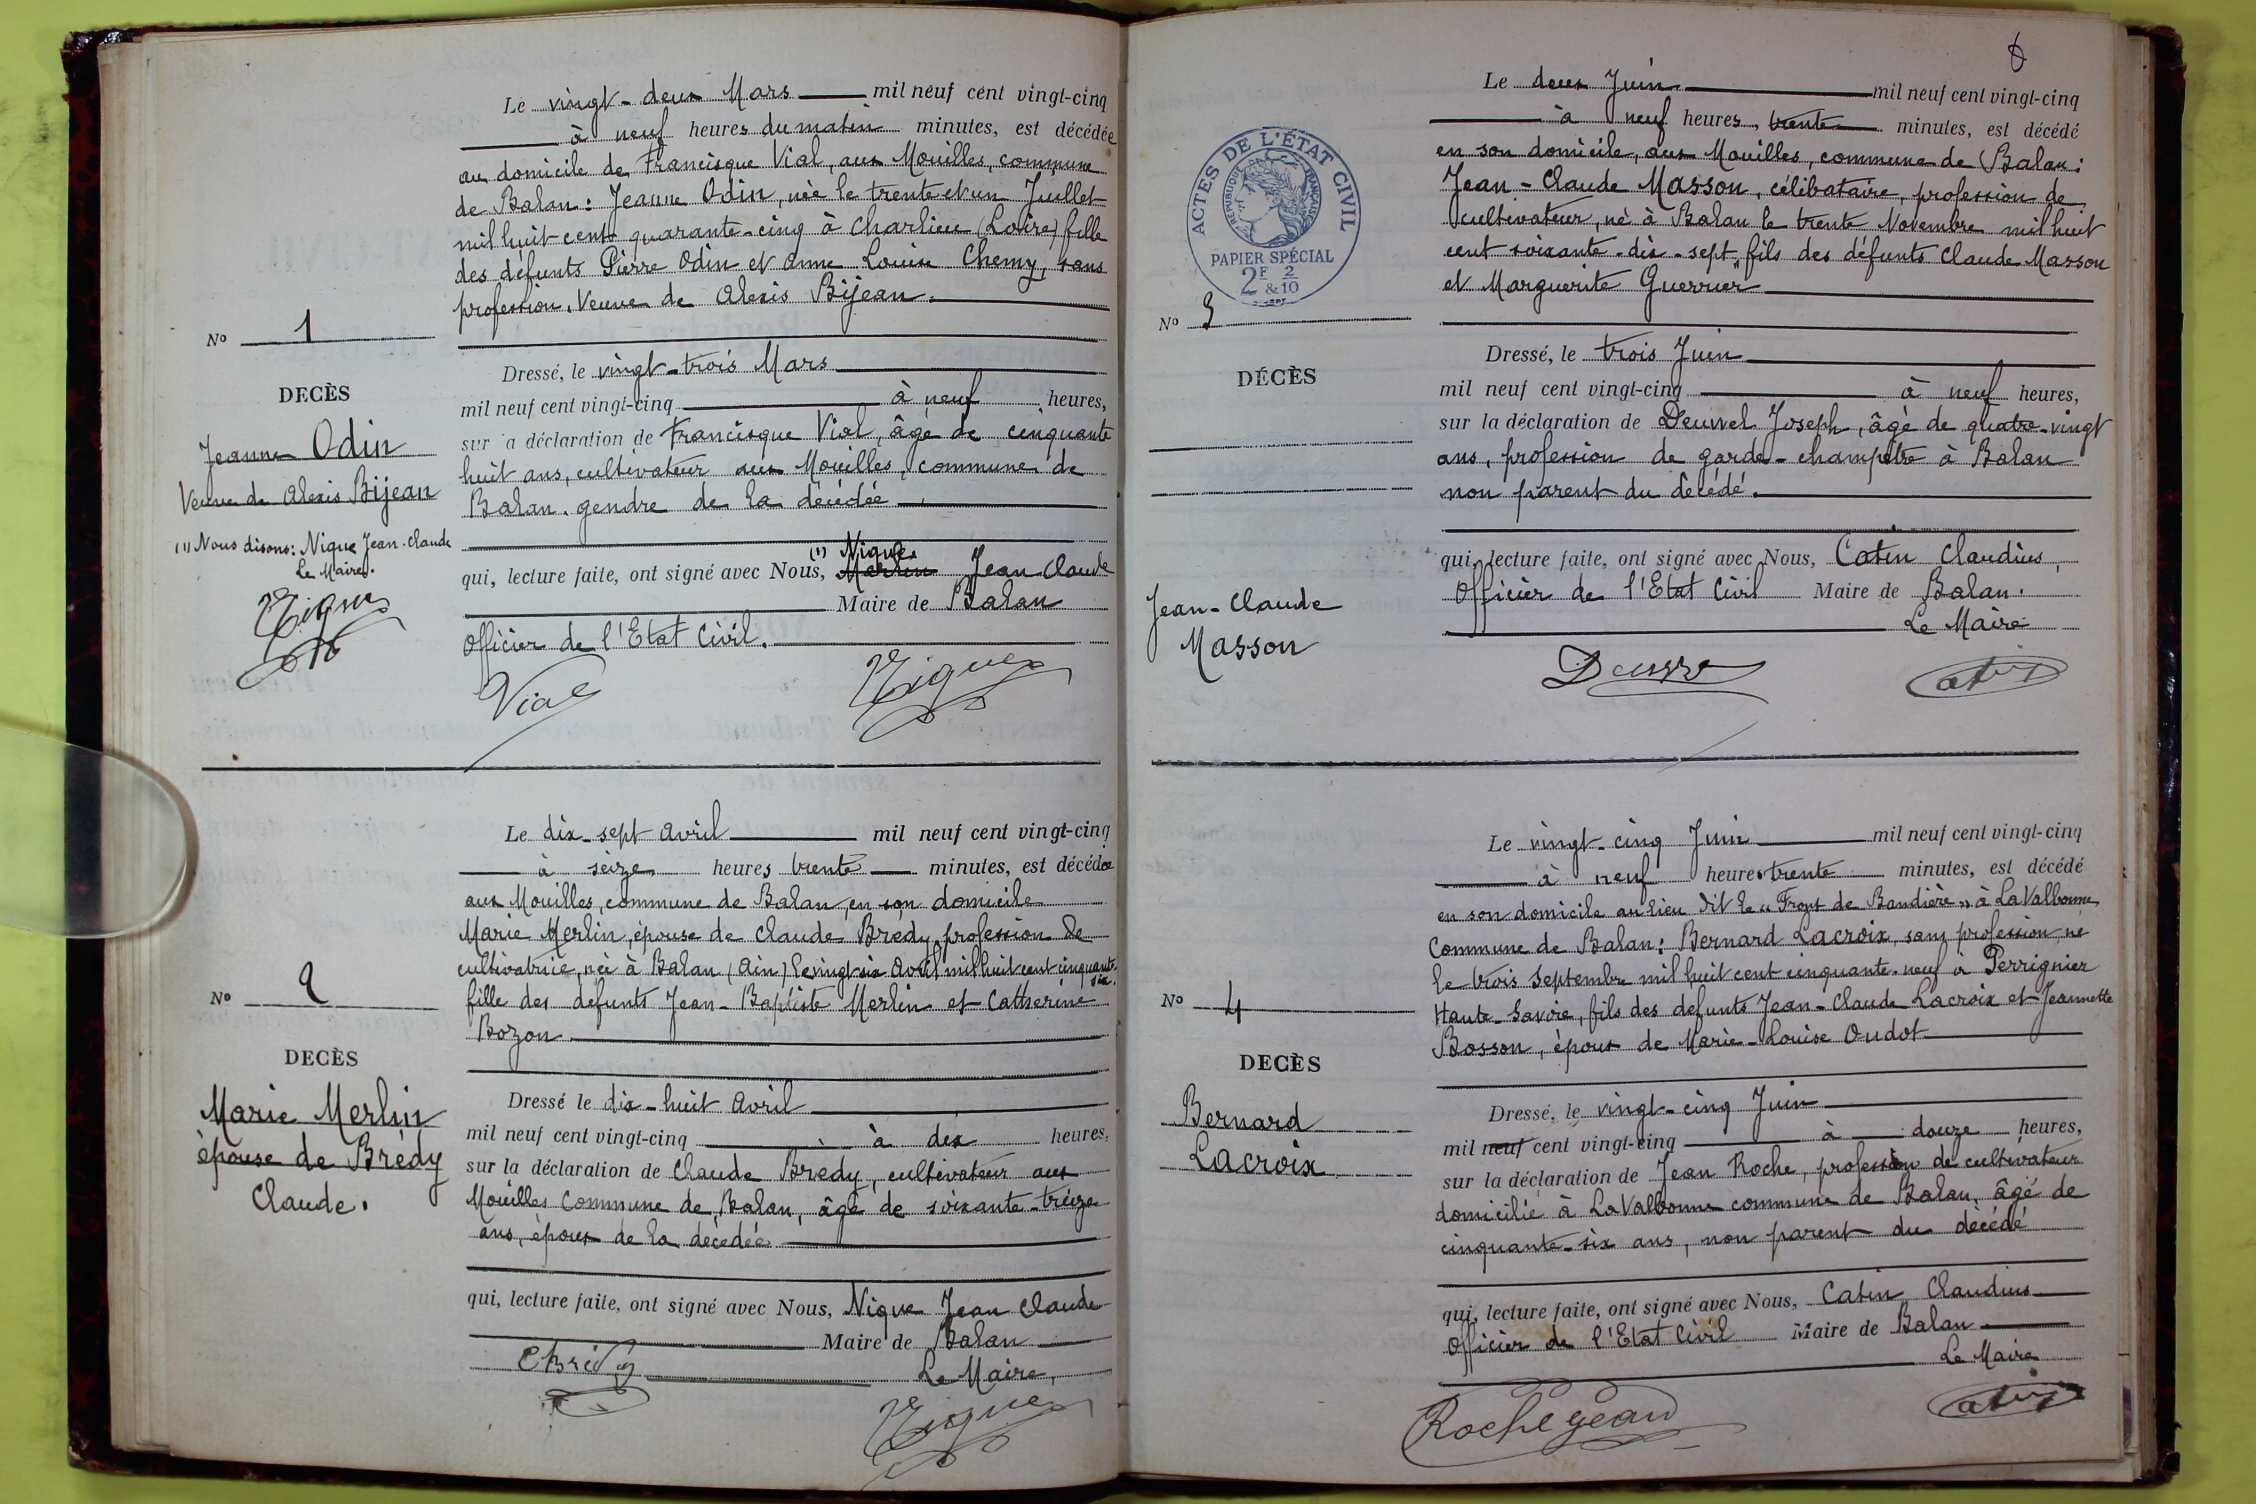 Le vingt-deux Mars mil neuf cent vingt-cinq
à neuf heures du matin minutes, est décédée
au domicile de Francisque Vial, aux Mouilles, commune
de Balan : Jeanne Odin, née le trente et un Juillet
mil huit cent quarante-cinq à Charlieu (Loire) fille
des défunts Pierre Odin et Anne Louise Chemy, sans
profession, Veuve de Alexis Bijean.
No 1
DECÈS
Jeanne Odin
Veuve de Alexis Bijean
(1) Nous disons : Nique Jean-Claude
Le Maire.
Nique
Dressé, le vingt-trois Mars
mil neuf cent vingt-cinq à neuf heures,
sur a déclaration de Francisque Vial, âgé de cinquante
huit ans, cultivateur aux Mouilles, commune de
Balan, gendre de la décédée
(1) Nique
qui, lecture faite, ont signé avec Nous, Merlin Jean Claude
Maire de Balan
Officier de l'Etat Civil.
Vial Nique
Le dix-sept Avril mil neuf cent vingt-cinq
à seize heures trente minutes, est décédée
aux Mouilles, commune de Balan, en son domicile
Marie Merlin, épouse de Claude Bredy, profession de
cultivatrice, née à Balan (Ain) le vingt six Avril mil huit cent cinquante-
six.
fille des défunts Jean-Baptiste Merlin et Catherine
Bozon.
No 2
DECÈS
Marie Merlin
épouse de Brédy
Claude.
Dressé le dix-huit Avril
mil neuf cent vingt-cinq à dix heures,
sur la déclaration de Claude Bredy, cultivateur aux
Mouilles Commune de Balan, âgé de soixante-treize
ans, époux de la décédée.
qui, lecture faite, ont signé avec Nous, Nique Jean Claude
Maire de Balan
CBrédy Le Maire,
Nique
Le deux Juin mil neuf cent vingt-cinq
à neuf heures, trente minutes, est décédé
en son domicile, aux Mouilles, commune de Balan :
Jean-Claude Masson, célibataire, profession de
cultivateur, né à Balan le trente Novembre mil huit
cent soixante-dix-sept, fils des défunts Claude Masson
et Marguerite Guerrier
ACTES DE L'ÉTAT CIVIL
RÉPUBLIQUE FRANÇAISE
PAPIER SPÉCIAL
2F & 2/10
No 3
DÉCÈS
Jean-Claude
Masson
Dressé, le trois Juin
mil neuf cent vingt-cinq à neuf heures,
sur la déclaration de Deuvrel Joseph, âgé de quatre-vingt
ans, profession de garde-champêtre à Balan
non parent du décédé.
qui, lecture faite, ont signé avec Nous, Catin Claudius,
Officier de l'Etat Civil Maire de Balan.
Le Maire
Catin
Le vingt-cinq Juin mil neuf cent vingt-cinq
à neuf heures trente minutes, est décédé
en son domicile au lieu dit le "Front de Bandière" à La Valbonne,
Commune de Balan : Bernard Lacroix, sans profession, né
le trois Septembre mil huit cent cinquante-neuf à Perrignier
Haute-Savoie, fils des défunts Jean-Claude Lacroix et Jeannette
Bosson, époux de Marie-Louise Oudot
No 4
DECÈS
Bernard
Lacroix
Dressé, le vingt-cinq Juin
mil neuf cent vingt-cinq à douze heures,
sur la déclaration de Jean Roche, profession de cultivateur
domicilié à La Valbonne commune de Balan, âgé de
cinquante-six ans, non parent du décédé
qui, lecture faite, ont signé avec Nous, Catin Claudius
Officier de l'Etat Civil Maire de Balan
Le Maire
Roche Jean Catin